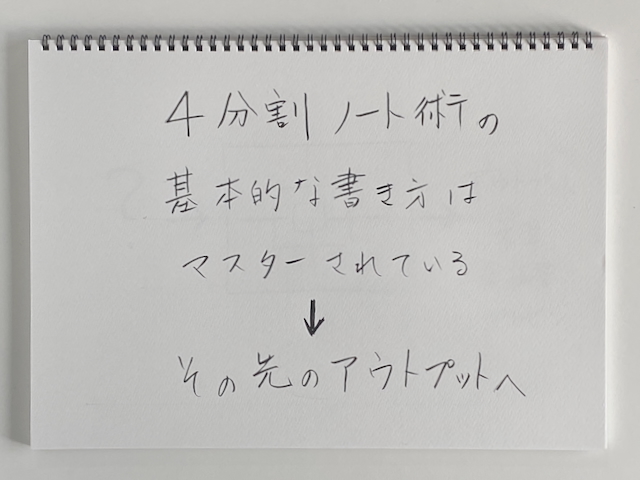 4分割ノート術の
基本的な書き方は
マスターされている
↓
その先のアウトプットへ